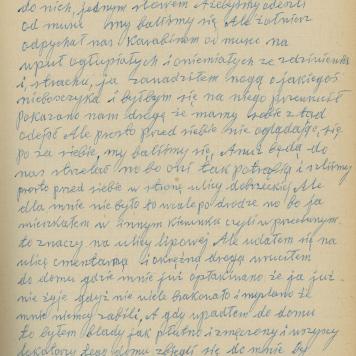 do nich, jednym słowem żebyśmy odeszli
od muru my baliśmy się Ale żołnierz
odpychał nas karabinem od muru na
wpół ogłupiałych i oniemiałych ze zdziwienia
i strachu, ja zawadziłem nogą o jakiegoś
nieboszczyka i byłbym się na niego przewrócił
pokazano nam drogę że mamy sobie z tąd
odejść Ale prosto przed siebie nie oglądając się
po za siebie, my baliśmy się, A nuż będą do
nas strzelać no bo oni tak potrafią i szliśmy
prosto przed siebie w stronę ulicy dobrzeckiej Ale
dla mnie nie było to wcale po drodze no bo ja
mieszkałem w innym kierunku czyli w przeciwnym
to znaczy na ulicy lipowej Ale udałem się na
ulicę cmentarną i okrężną drogą wróciłem
do domu gdzie mnie już opłakiwano że ja już
nie żyje gdyż nie wiele brakowało i myślano że
mnie niemcy zabili, A gdy wpadłem do domu
to byłem blady jak płótno i zmęczony i wszyscy
lokatorzy tego domu zbiegli się do mnie by